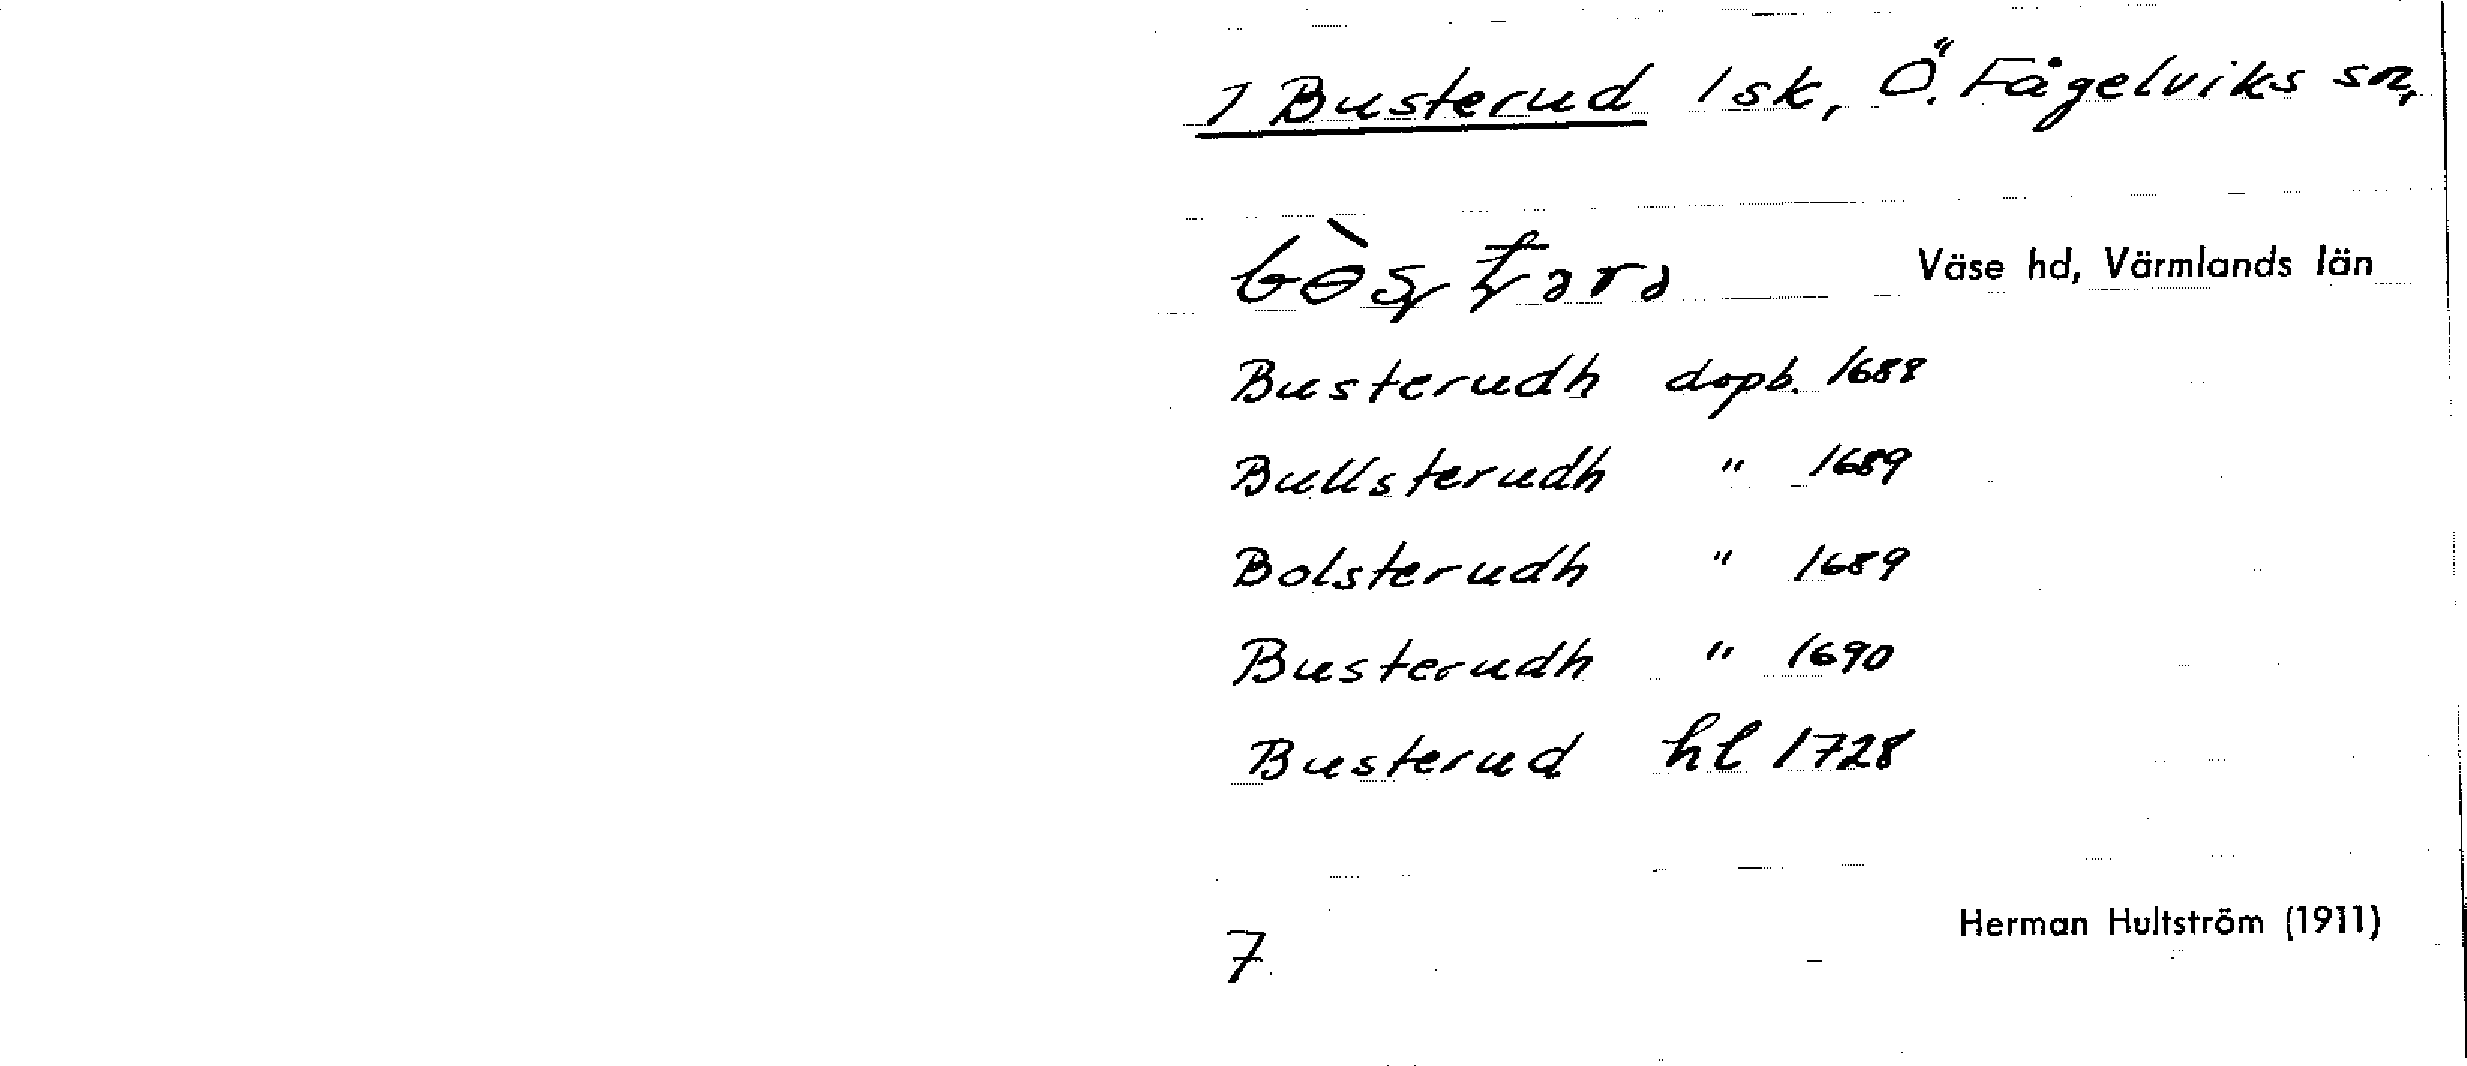 1 Busterud 1 sk, Ö. Fågelviks sn,
Väse hd, Värmlands län
Busterudh dopb. 1688
Bullsterudh " 1689
Bolsterudh " 1689
Busterudh " 1690
Busterud hl 1728
Herman Hultström (1911)
7